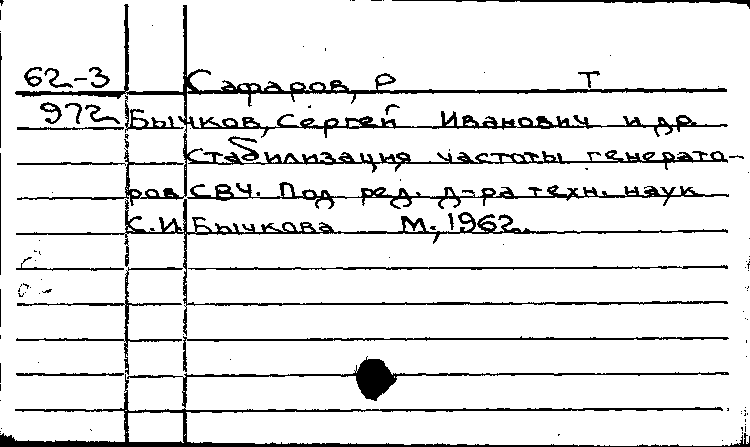 62-3 Сафаров, Р Т
972 Бычков, Сергей Иванович и др.
Стабилизация частоты генерато-
ров СВЧ. Под ред. д-ра техн. наук
С.И. Бычкова М., 1962.